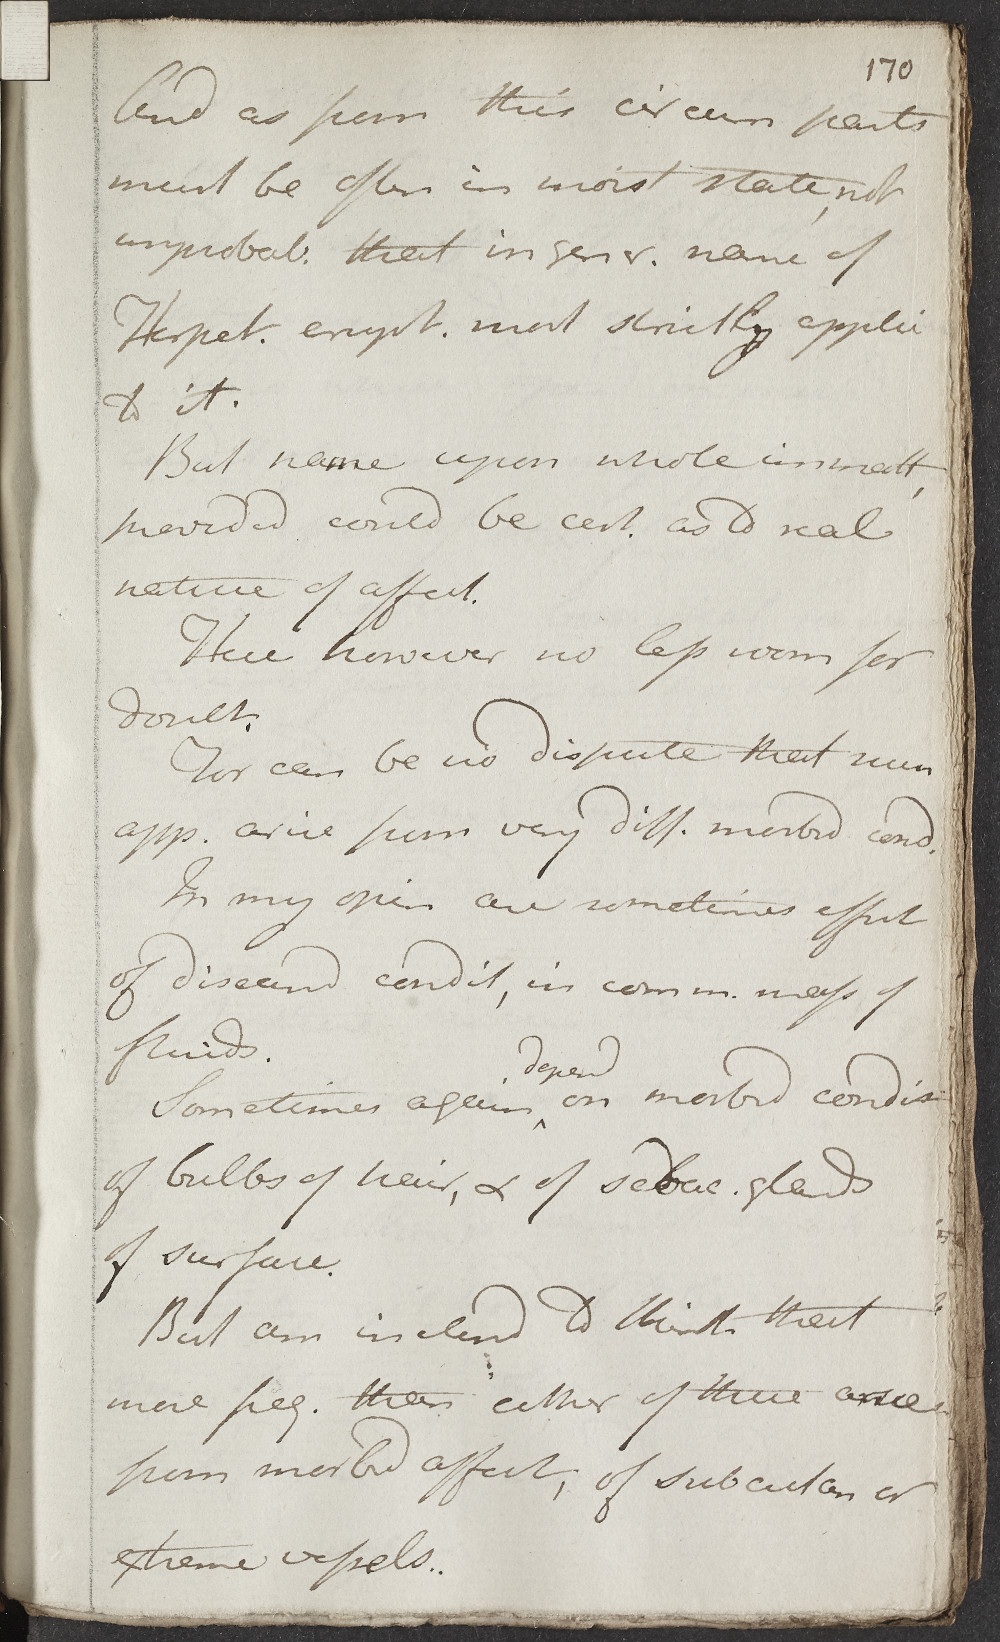 170
And as from this circum parts
must be often in moist state, not
improbab. that in gener. name of
Herpet. erupt. most strictly applic
to it.
But name upon whole immatt,
provided could be cert. as to real
nature of affect.
Here however no less room for
doubt.
For can be no dispute that num
app. arise from very diff. morbid cond.
In my opin are sometimes effect
of diseased condit, in comm. mass of
fluids.
Sometimes again, depend on morbid condit
of bulbs of hair, & of sebac. glands
of surface.
But am inclined to think that
more freq. than either of these arise
from morbid affect, of subcutan or
extreme vessels..